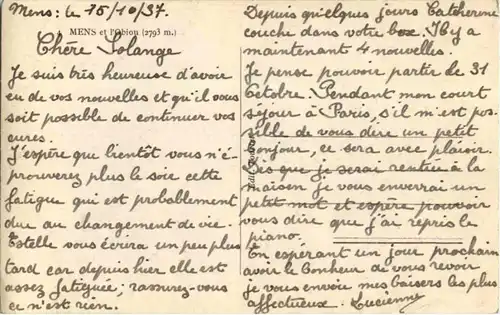 Mens: le 15/10/37.
MENS et l'Obiou (2793 m.)
Chère Solange
Je suis très heureuse d'avoir
eu de vos nouvelles et qu'il vous
soit possible de continuer vos
cures.
J'espère que bientôt vous n'é-
prouverez plus le soir cette
fatigue qui est probablement
due au changement de vie.
Estelle vous écrira un peu plus
tard car depuis hier elle est
assez fatiguée; rassurez-vous
ce n'est rien.
Depuis quelques jours Catherine
couche dans votre box. Il y a
maintenant 4 nouvelles.
Je pense pouvoir partir le 31
Octobre. Pendant mon court
séjour à Paris, s'il m'est pos-
sible de vous dire un petit
bonjour, ce sera avec plaisir.
Dès que je serai rentrée à la
maison je vous enverrai un
petit mot et espère pouvoir
vous dire que j'ai repris le
piano.
En espérant un jour prochain
avoir le bonheur de vous revoir
je vous envoie mes baisers les plus
affectueux. Lucienne